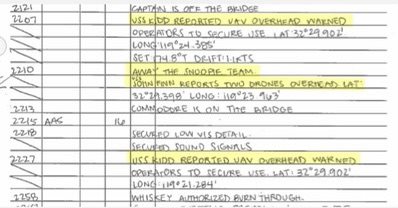 2121 CAPTAIN IS OFF THE BRIDGE
2207 USS KIDD REPORTED UAV OVERHEAD WARNED
OPERATORS TO SECURE USE. LAT: 32°29.902'
LONG: 119°24.385'
SET 174.8°T DRIFT: 1.1KTS
2210 AWAY THE SNOOPIE TEAM.
JOHN FINN REPORTS TWO DRONES OVERHEAD LAT:
32°29.398' LONG: 119°23.963'
2213 COMMODORE IS ON THE BRIDGE
2215 AAS 16
2218 SECURED LOW VIS DETAIL.
SECURED SOUND SIGNALS
2227 USS KIDD REPORTED UAV OVERHEAD WARNED
OPERATORS TO SECURE USE. LAT: 32°29.902'
LONG: 119°21.284'
2258 WHISKEY AUTHORIZED BURN THROUGH.